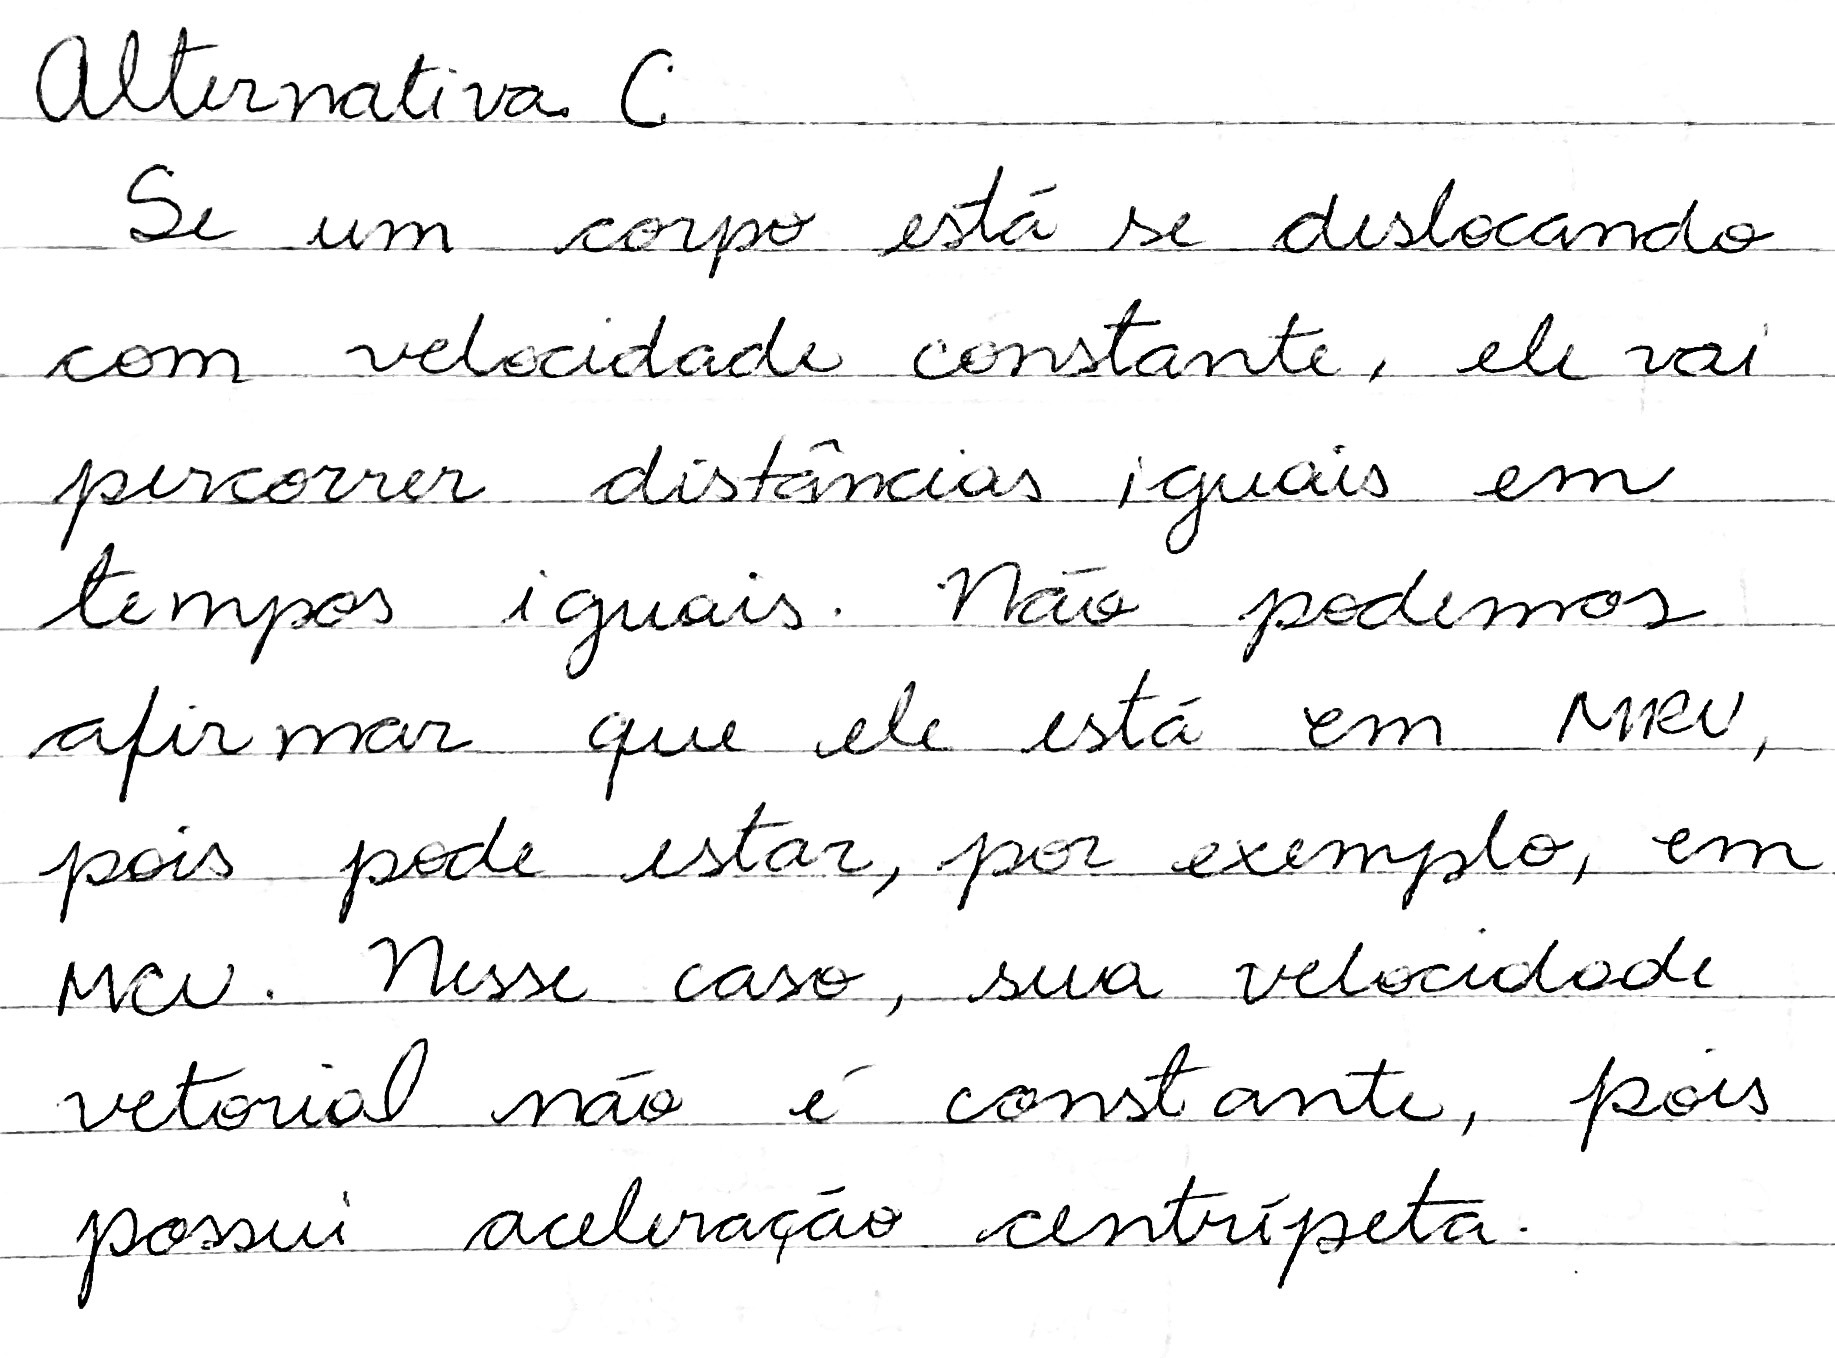 Alternativa C
Se um corpo está se deslocando
com velocidade constante, ele vai
percorrer distâncias iguais em
tempos iguais. Não podemos
afirmar que ele está em MRU,
pois pode estar, por exemplo, em
MCU. Nesse caso, sua velocidade
vetorial não é constante, pois
possui aceleração centrípeta.